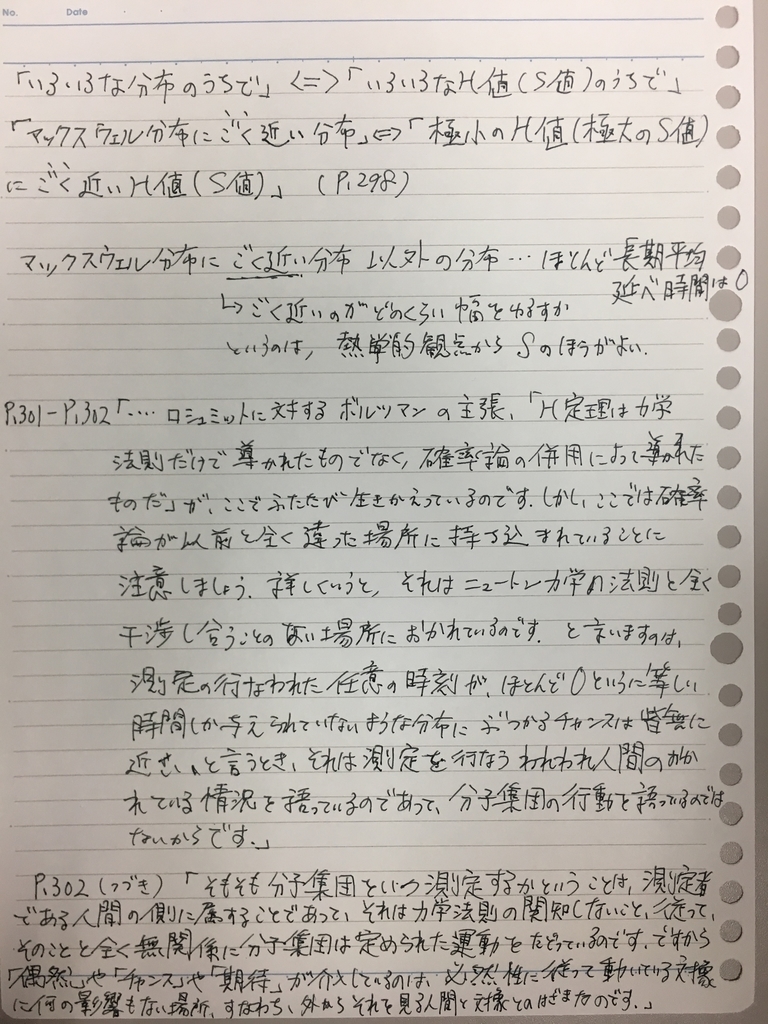 No.　Date
「いろいろな分布のうちで」 <=>「いろいろなH値(S値)のうちで」
「マックスウェル分布にごく近い分布」<=>「極小のH値(極大のS値)
にごく近いH値(S値)」 (P.298)
マックスウェル分布にごく近い分布以外の分布…ほとんど長期平均
延べ時間は0
↳ごく近いのがどのくらい幅をゆるすか
というのは、熱学的観点からSのほうがよい.
P.301-P.302「…. ロシュミットに対するボルツマンの主張、「H定理は力学
法則だけで導かれたものでなく、確率論の併用によって導かれた
ものだ」が、ここでふたたび生きかえっているのです.しかし、ここでは確率
論が以前と全く違った場所に持ち込まれていることに
注意しましょう. 詳しくいうと、それはニュートン力学の法則と全く
干渉し合うことのない場所におかれているのです. と言いますのは、
測定の行なわれた任意の時刻が、ほとんど0というに等しい
時間しか与えられていないような分布にぶつかるチャンスは皆無に
近い、と言うとき、それは測定を行なうわれわれ人間のおか
れている情況を語っているのであって、分子集団の行動を語っているのでは
ないからです.」
P.302(つづき)「そもそも分子集団をいつ測定するかということは、測定者
である人間の側に属することであって、それは力学法則の関知しないこと、従って、
そのことと全く無関係に分子集団は定められた運動をたどっているのです.ですから
「偶然」や「チャンス」や「期待」が介入しているのは、必然性に従って動いている対象
に何の影響もない場所、すなわち、外からそれを見る人間と対象とのはざまなのです.」